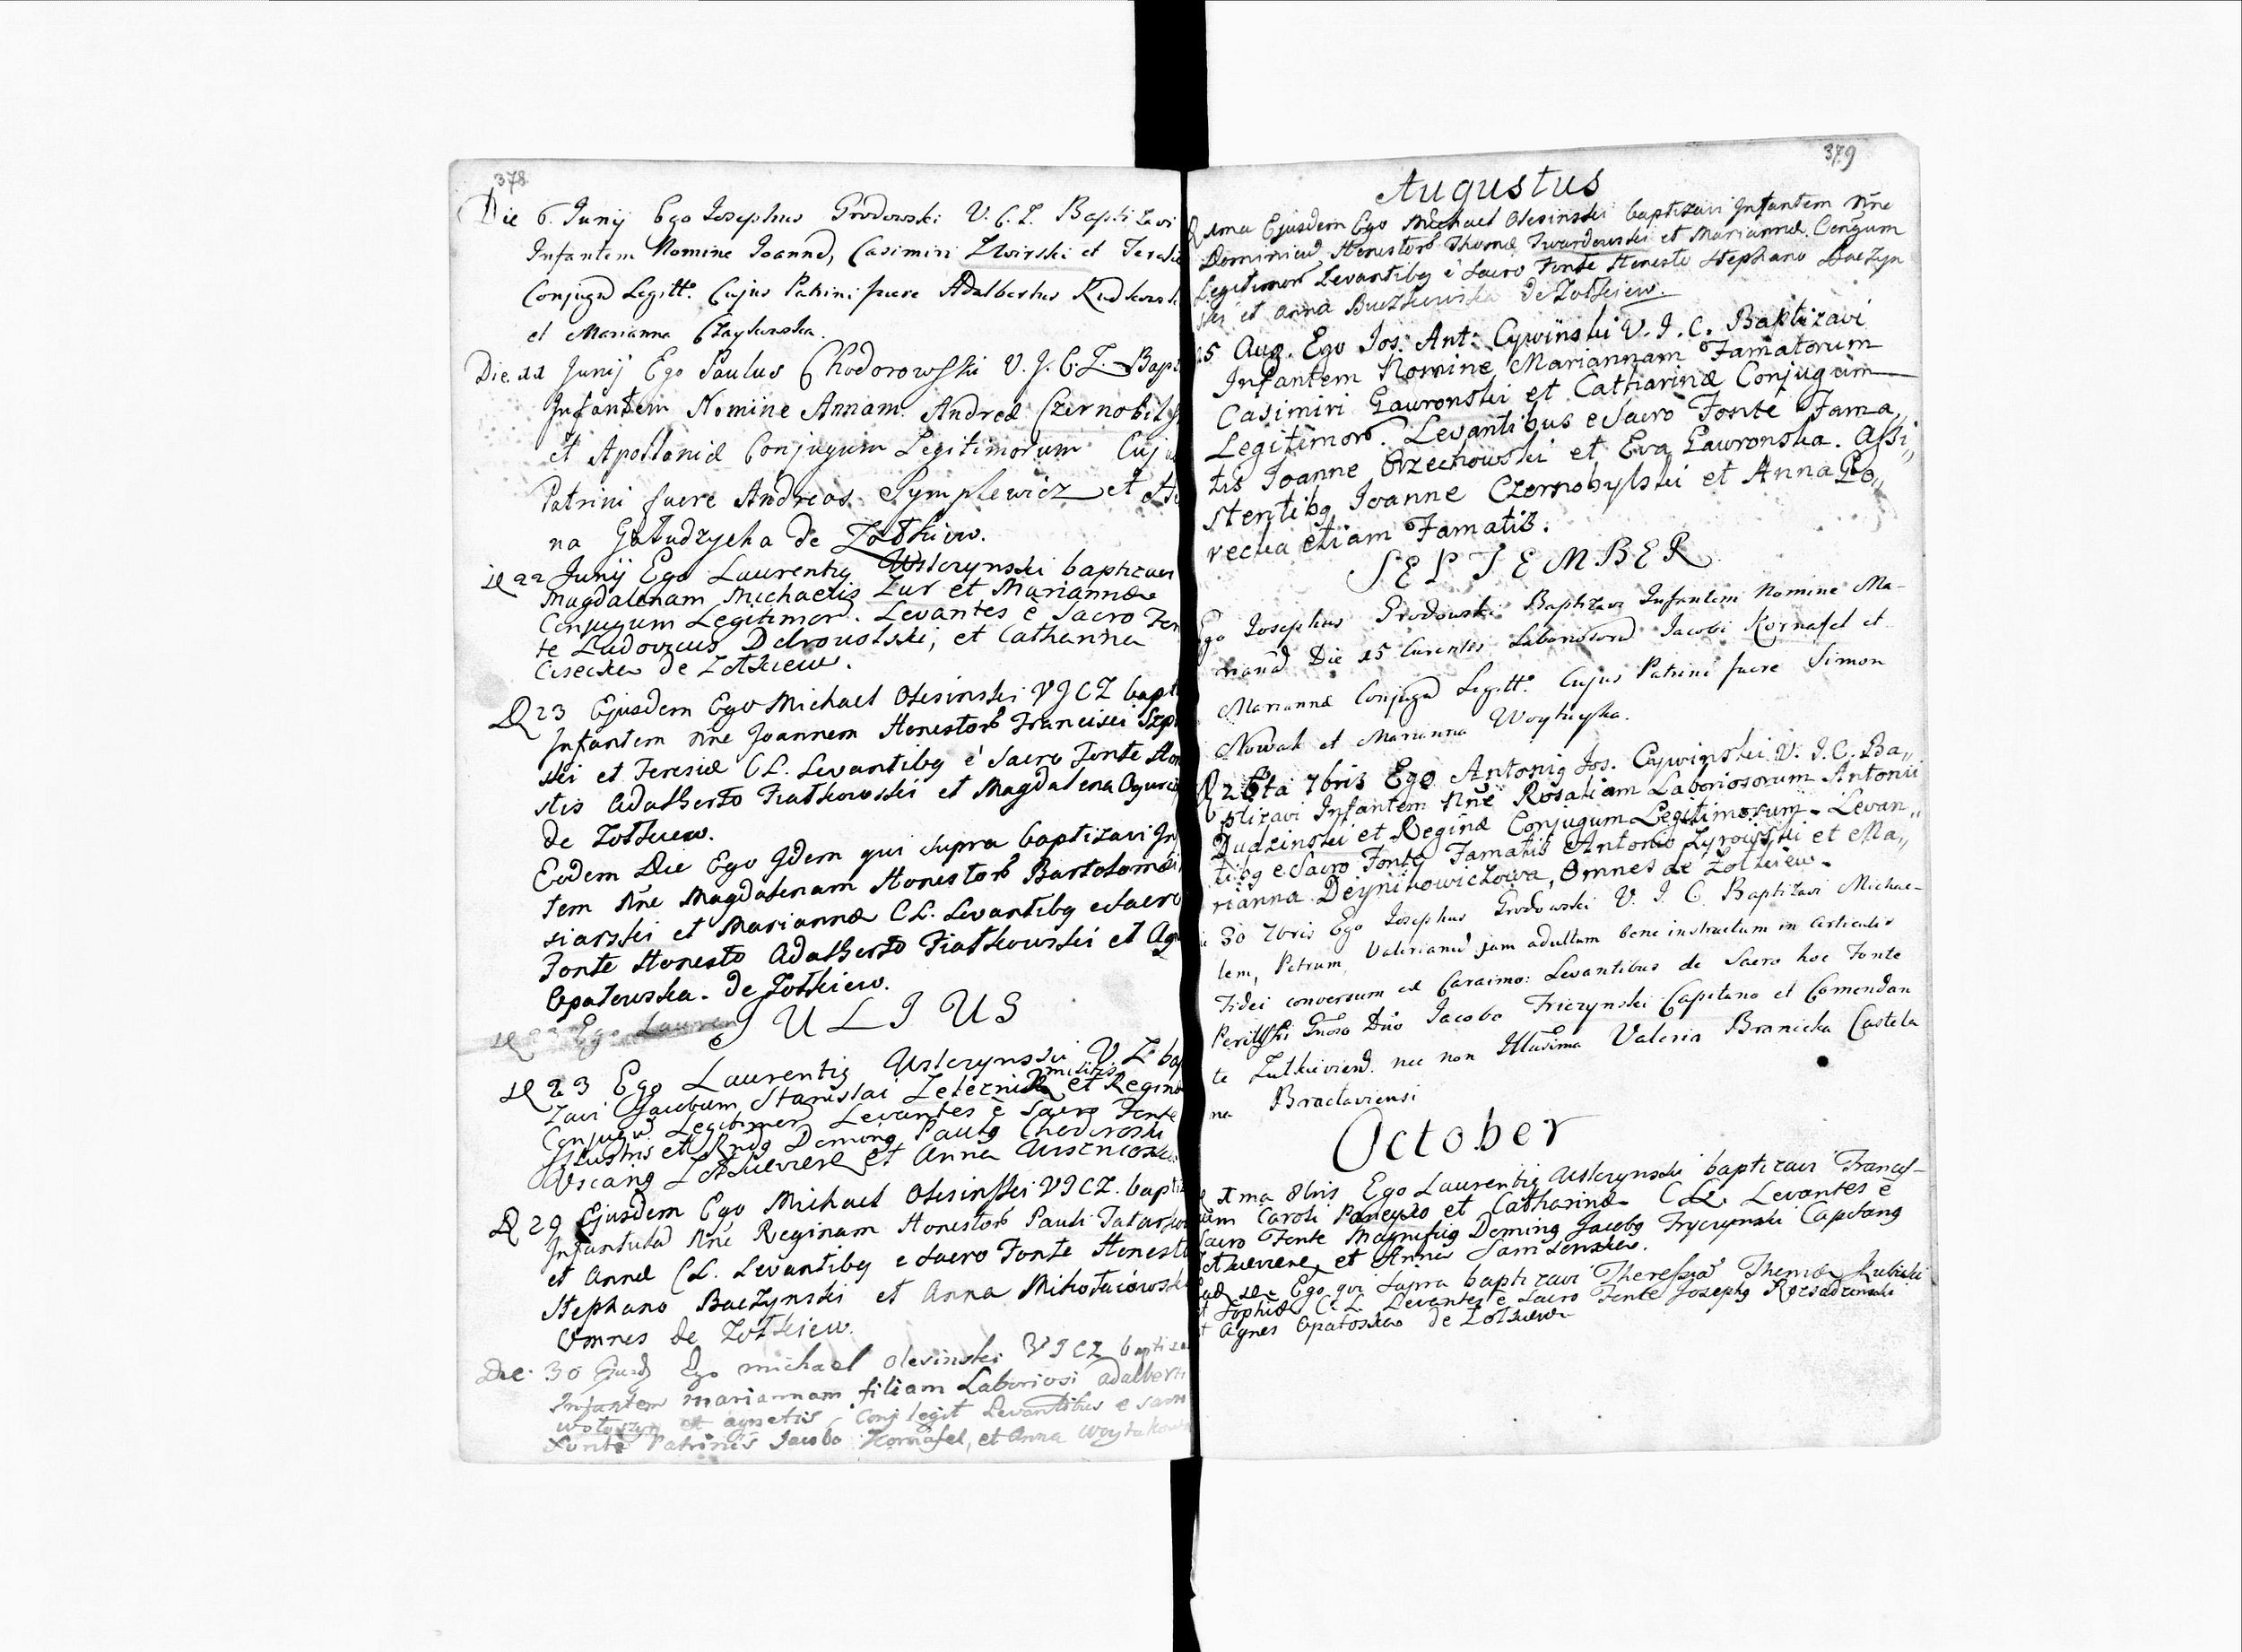 378
Die 6. Junij Ego Josephus Grodowski V. C. Z. Baptizavi
Infantem Nomine Joanne, Casimiri Zwirski et Teresi
Conjugu Legitt. Cujus Patrini fuere Adalbertus Rudkowsk
et Marianna Czaykowska.
Die 11 Junij Ego Paulus Chodorowski V. J. C. Z. Bapt
Infantem Nomine Annam. Andreæ Czernobilsk
et Apolloniæ Conjugum Legitimorum Cuju
Patrini fuere Andreas Symplewicz et
na Gałudzycha de Zołkiew.
22 Junij Ego Laurentiq Usłrzynski baptizavi
Magdalenam Michaelis Zur et Mariannæ
Conjugum Legitimor. Levantes è Sacro Fon
te Ludovicus et Catharina
de Zołkiew.
D 23 Ejusdem Ego Michael Olesinski VJCZ bapti
Infantem nne Joannem Honestorū Francisci
ski et Teresiæ CL. Levantibq è Sacro Fonte Hon
stis Adalberto Fiałkowski et Magdalena
de Zołkiew.
Eodem Die Ego Jdem qui supra baptizavi In
tem nne Magdalenam Honestorū Bartolomæi
siarski et Mariannæ CL. Levantibq e Sacro
Fonte Honesto Adalberto Fiałkowski et Ag
Opatowska. de Zołkiew.
Ego Lauren
JULIUS
23 Ego Laurentiq Usłrzynski V. Z. bap
tzavi Jacobum Stanislai militis et Regina
Conjugū Legitimor Levantes è Sacro Fonte
Illustris et Rndq Dominq Paulq Chodoroski
Vicariq et Anna
D 29 Ejusdem Ego Michael Olesinski VJCZ. bapti
Infantulā nne Reginam Honestorū Pauli
et Annæ CL. Levantibq e Sacro Fonte Honest
Stephano Baczynski et Anna Mikołaiowsk
Omnes de Zołkiew.
Die 30 Ego michael olesinski VJCZ baptiza
Infantem mariannam filiam Laboriosi adalberti
wołoszyn et agnetis Conj legit Levantibus e sacro
Fonte Patrinis Jacobo Kornafel, et Anna
379
Augustus
1ma Ejusdem Ego Michael Olesinski baptizavi Infantem Nne
Dominicū Honestorū Thomæ Twardowski et Mariannæ Conjum
Legitimorū Levantibq è Sacro Fonte Honesto Stephano Baczyn
ski et Anna Buczkowska de Zołkiew.
15 Aug. Ego Jos: Ant: Cywinski V. J. C. Baptizavi
Infantem Nomine Mariannam Famatorum
Casimiri Gawronski et Catharinæ Conjugum
Legitimorū. Levantibus e Sacro Fonte Fama„
tis Joanne Orzechowski et Eva Gawronska. Assi„
stentibq Joanne Czernobylski et Anna Go„
recka etiam Famatis.
SEPTEMBER
Ego Josephus Grodowski Baptizavi Infantem Nomine Ma-
rianā Die 15 Curentis Laboriosorū Jacobi Kornafel et
Mariannæ Conjugū Legitt. Cujus Patrini fuere Simon
Nowak et Marianna
26ta 7bris Ego Antoniq Jos. Cywinski V. J. C. Ba„
ptizavi Infantem Nne Rosaliam Laboriosorum Antonii
Dudzinski et Reginæ Conjugum Legitimorum. Levan„
tibq e Sacro Fonte Famatis Antonio Zyrowski et Ma„
rianna Deynikowiczowa, Omnes de Zołkiew.
30 7bris Ego Josephus Grodowski V. J. C. Baptizavi Michae-
lem, Petrum, Valerianū jam adultum bene instructum in articulis
Fidei conversum ex Caraimo: Levantibus de Sacro hoc Fonte
Dno Jacobo Friczynski Capitano et Comendan
te nec non Illusima Valeria Branicka Castela
na Braclaviensi
October
1ma 8bris Ego Laurentiq Usłrzynski baptizavi Francis-
cum Caroli et Catharinæ C L. Levantes è
Sacro Fonte Magnifiq Dominq Jacobq Fryczynski Capitanq
et Anna
Ego qui supra baptizavi Theresiā Thomæ Kubicki
et Sophiæ C. L. Levantes è Sacro Fonte Josephq
et Agnes Opatoska de Zołkiew